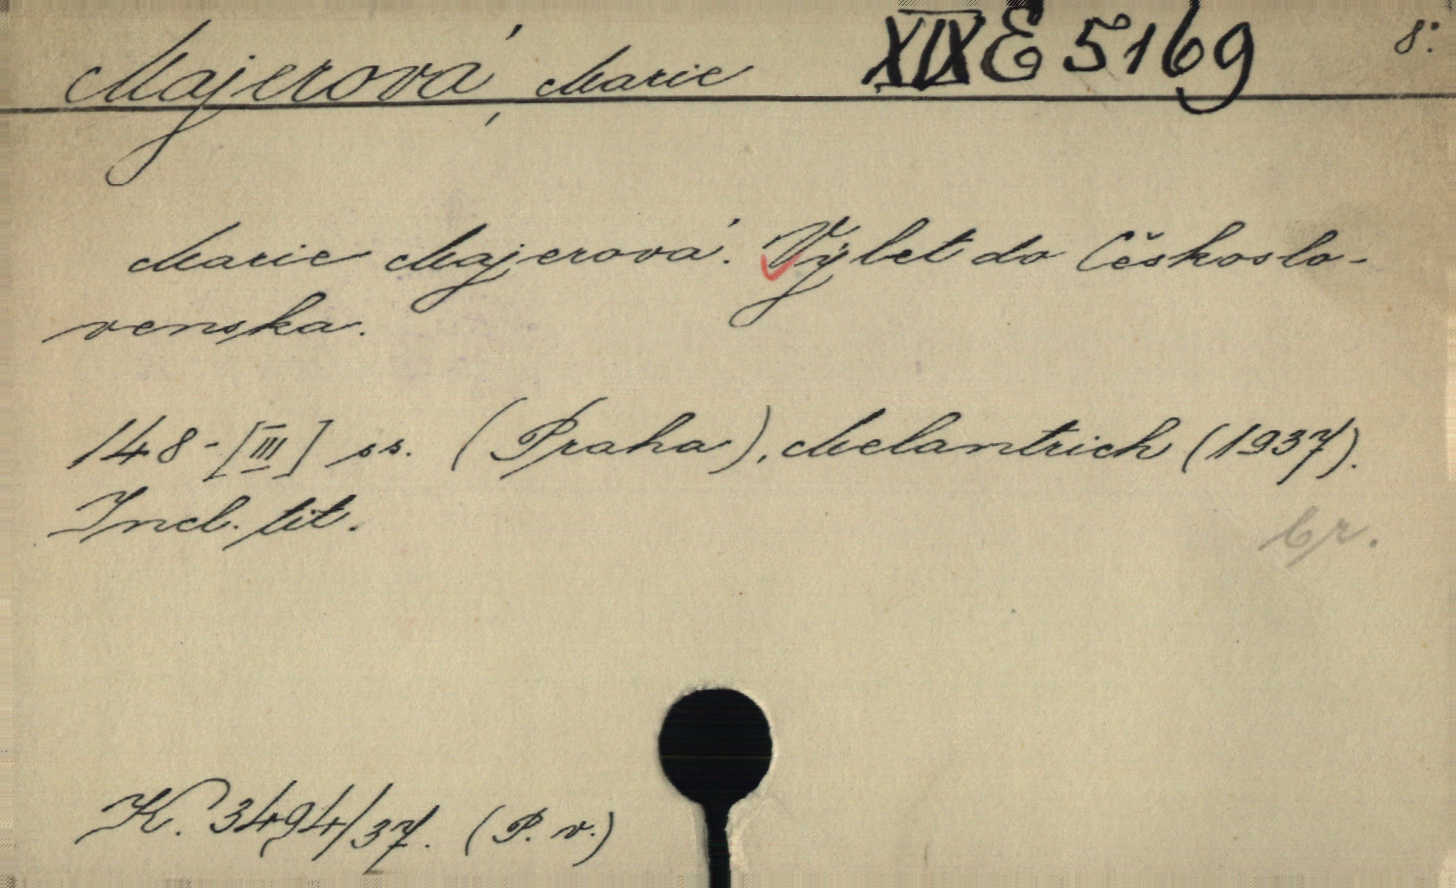 Majerová, Marie XIX E 5169 8°.
Marie Majerová. Výlet do Českoslo-
venska.
148-[III] ss. (Praha), Melantrich (1937).
Incl. tit.
br.
K. 3494/37. (P. v.)